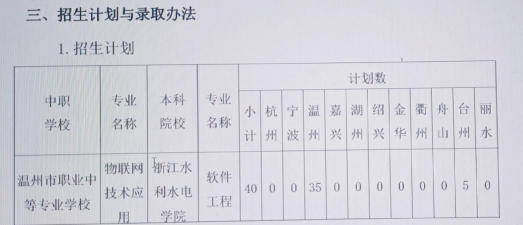 三、招生计划与录取办法
1. 招生计划
中职学校 专业名称 本科院校 专业名称 计划数
小计 杭州 宁波 温州 嘉兴 湖州 绍兴 金华 衢州 舟山 台州 丽水
温州市职业中等专业学校 物联网技术应用 浙江水利水电学院 软件工程 40 0 0 35 0 0 0 0 0 0 5 0